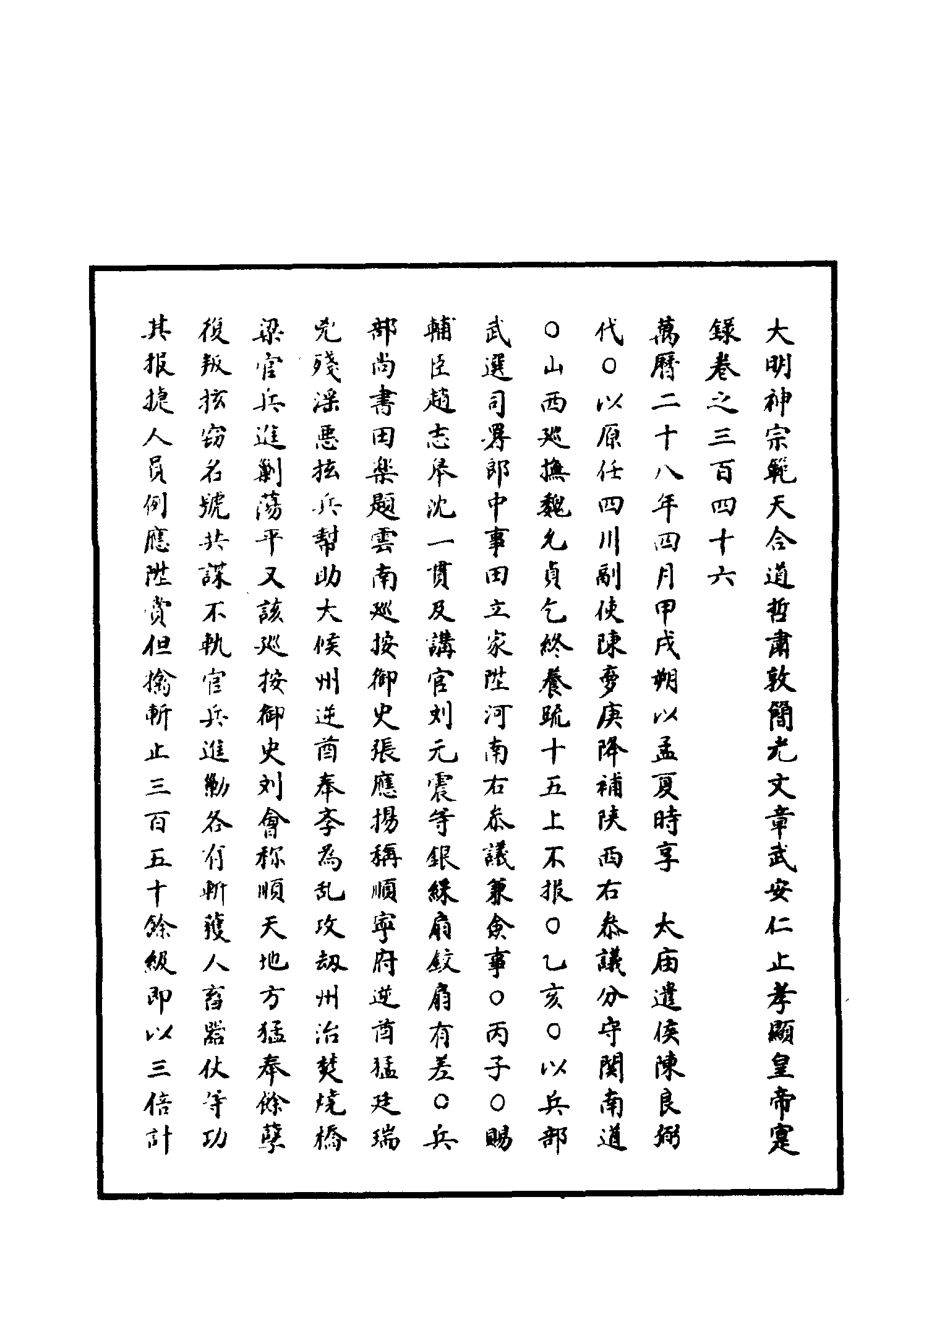 大明神宗範天合道哲肅敦簡光文章武安仁止孝顯皇帝寔
錄卷之三百四十六
萬曆二十八年四月甲戌朔以孟夏時享　太庙遣侯陳良弼
代○以原任四川副使陳夢庚降補陕西右叅議分守関南道
○山西廵撫魏允貞乞終養疏十五上不报○乙亥○以兵部
武選司署郎中事田立家陞河南右叅議兼僉事○丙子○賜
輔臣趙志皋沈一貫及講官刘元震等銀綵扇釵扇有差○兵
部尚書田樂題雲南廵按御史張應揚稱順寧府逆酋猛廷瑞
兇殘淫惡拡兵幫助大候州逆酋奉李為乱攻刼州治焚燒橋
梁官兵進剿蕩平又該廵按御史刘會称順天地方猛奉餘孽
復叛拡窃名號共謀不軌官兵進勦各有斬獲人畜器仗等功
其报捷人員例應陞赏但擒斬止三百五十餘級即以三倍計